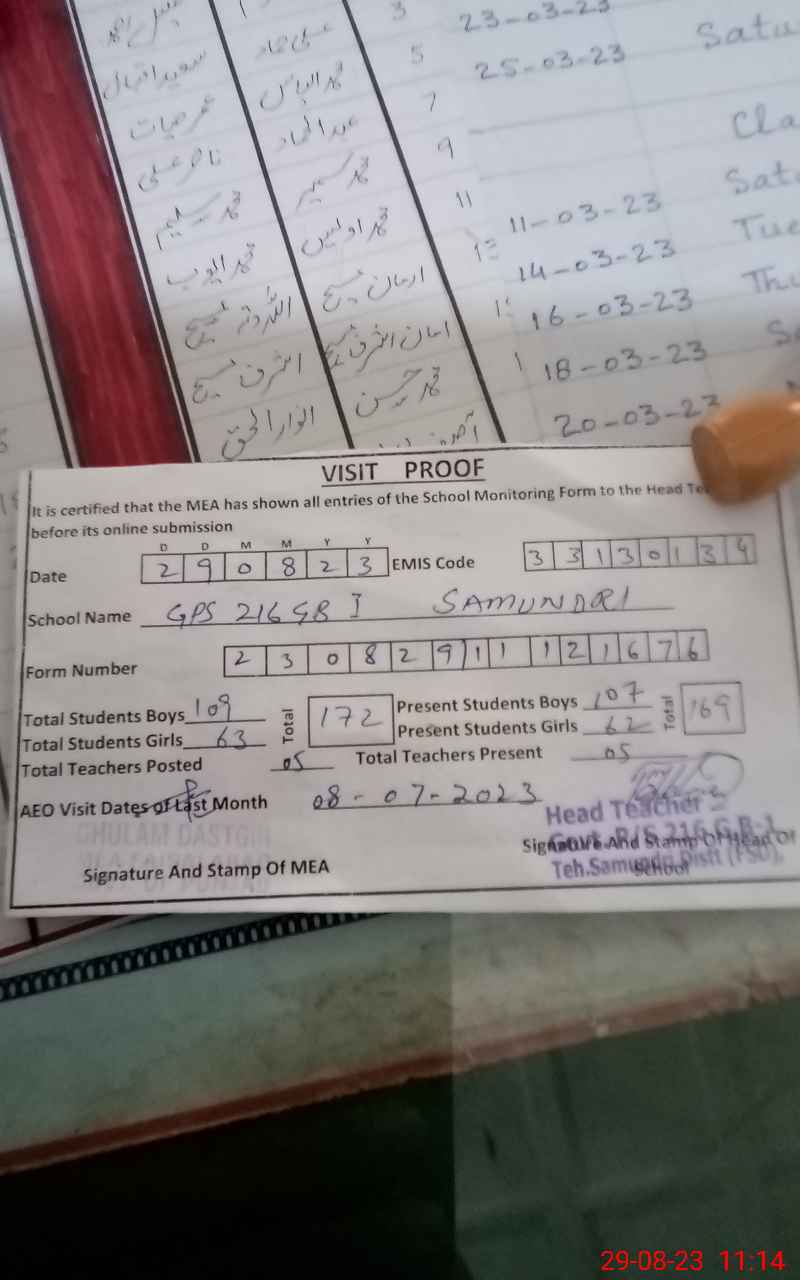 3 23-03-23
علی حماد
سوید اقبال محمد الیاس 5 25-03-23 Satu
عمر حیات عبدالحماد 7
ناصر علی محمد سمیر 9 Cla
محمد سلیم محمد اویس 11 11-03-23 Satu
محمد ایوب ارمان مسیح 14-03-23 Tue
اللہ دتہ مسیح امان اشرف مسیح 16-03-23 Thu
اشرف مسیح محمد حسن 18-03-23 Sa
انوار الحق 20-03-23
VISIT PROOF
It is certified that the MEA has shown all entries of the School Monitoring Form to the Head Te
before its online submission
D D M M Y Y
Date 2 9 0 8 2 3 EMIS Code 3 3 1 3 0 1 3 4
School Name GPS 216 GB I SAMUNDRI
Form Number 2 3 0 8 2 9 1 1 1 2 1 6 7 6
Total Students Boys 109 Total 172 Present Students Boys 107 Total 169
Total Students Girls 63 Present Students Girls 62
Total Teachers Posted 05 Total Teachers Present 05
AEO Visit Dates of Last Month 08-07-2023
GHULAM DASTGIR
Head Teacher
Govt. P/S 216 G.B-1
Teh.Samundri Distt (FSD).
Signature And Stamp Of MEA
Signature And Stamp Of Head Of
School
29-08-23 11:14